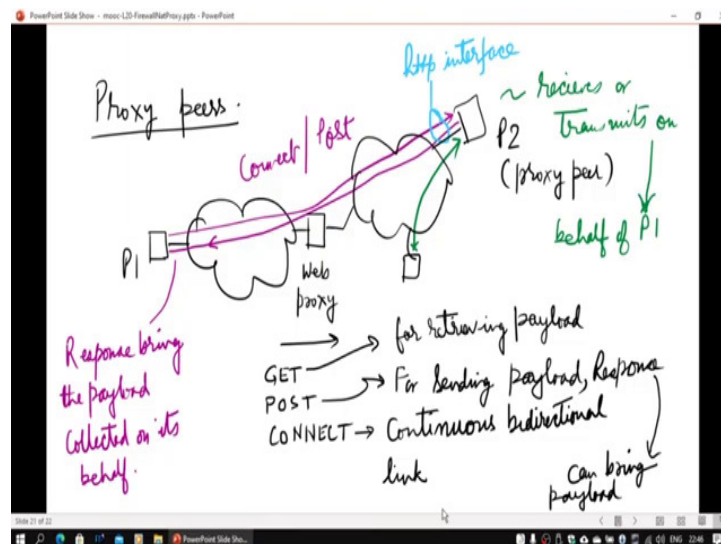 PowerPoint Slide Show - mooc-L20-FirewallNatProxy.pptx - PowerPoint
http interface
Proxy peers.
~ recieves or
Transmits on
behalf of P1
Connect/Post
P2
(proxy peer)
P1
Web
proxy
Response bring
the payload
Collected on its
behalf.
GET → for retrieving payload
POST → For Sending payload, Response
can bring
payload
CONNECT → Continuous bidirectional
link
Slide 21 of 22
PowerPoint Slide Sho...
ENG 22:46